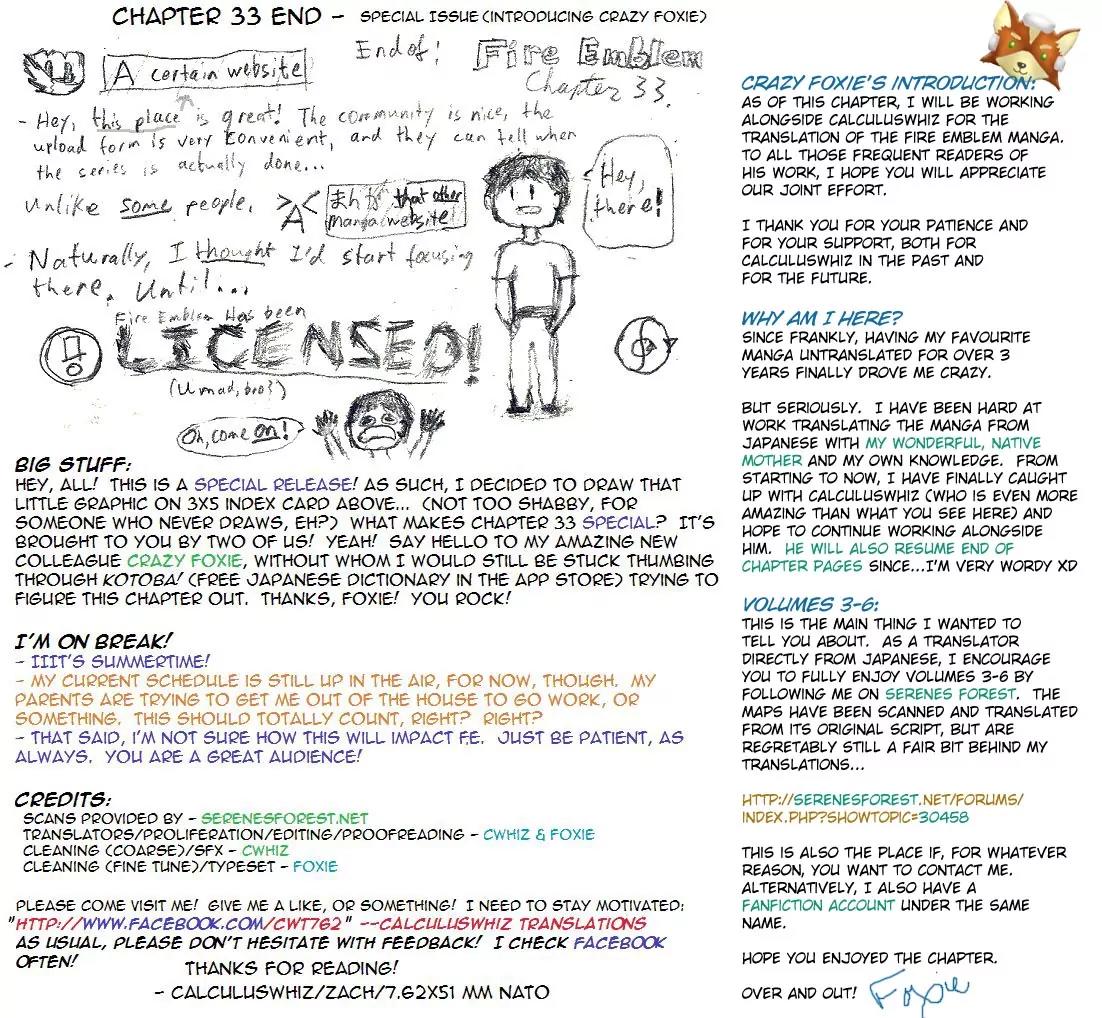 CHAPTER 33 END - SPECIAL ISSUE (INTRODUCING CRAZY FOXIE)
End of! Fire Emblem
Chapter 33.
A certain website
- Hey, this place is great! The community is nice, the
upload form is very convenient, and they can tell when
the series is actually done...
unlike some people. >A< まんが that other
manga website!
Hey,
there!
- Naturally, I thought I'd start focusing
there. Until...
Fire Emblem Has been
LICENSED!
(U mad, bro?)
Oh, come on!
BIG STUFF:
HEY, ALL! THIS IS A SPECIAL RELEASE! AS SUCH, I DECIDED TO DRAW THAT
LITTLE GRAPHIC ON 3X5 INDEX CARD ABOVE... (NOT TOO SHABBY, FOR
SOMEONE WHO NEVER DRAWS, EH?) WHAT MAKES CHAPTER 33 SPECIAL? IT'S
BROUGHT TO YOU BY TWO OF US! YEAH! SAY HELLO TO MY AMAZING NEW
COLLEAGUE CRAZY FOXIE, WITHOUT WHOM I WOULD STILL BE STUCK THUMBING
THROUGH KOTOBA! (FREE JAPANESE DICTIONARY IN THE APP STORE) TRYING TO
FIGURE THIS CHAPTER OUT. THANKS, FOXIE! YOU ROCK!
I'M ON BREAK!
- IIIT'S SUMMERTIME!
- MY CURRENT SCHEDULE IS STILL UP IN THE AIR, FOR NOW, THOUGH. MY
PARENTS ARE TRYING TO GET ME OUT OF THE HOUSE TO GO WORK, OR
SOMETHING. THIS SHOULD TOTALLY COUNT, RIGHT? RIGHT?
- THAT SAID, I'M NOT SURE HOW THIS WILL IMPACT F.E. JUST BE PATIENT, AS
ALWAYS. YOU ARE A GREAT AUDIENCE!
CREDITS:
SCANS PROVIDED BY - SERENESFOREST.NET
TRANSLATORS/PROLIFERATION/EDITING/PROOFREADING - CWHIZ & FOXIE
CLEANING (COARSE)/SFX - CWHIZ
CLEANING (FINE TUNE)/TYPESET - FOXIE
PLEASE COME VISIT ME! GIVE ME A LIKE, OR SOMETHING! I NEED TO STAY MOTIVATED:
"HTTP://WWW.FACEBOOK.COM/CWT762" --CALCULUSWHIZ TRANSLATIONS
AS USUAL, PLEASE DON'T HESITATE WITH FEEDBACK! I CHECK FACEBOOK
OFTEN!
THANKS FOR READING!
- CALCULUSWHIZ/ZACH/7.62X51 MM NATO
CRAZY FOXIE'S INTRODUCTION:
AS OF THIS CHAPTER, I WILL BE WORKING
ALONGSIDE CALCULUSWHIZ FOR THE
TRANSLATION OF THE FIRE EMBLEM MANGA.
TO ALL THOSE FREQUENT READERS OF
HIS WORK, I HOPE YOU WILL APPRECIATE
OUR JOINT EFFORT.
I THANK YOU FOR YOUR PATIENCE AND
FOR YOUR SUPPORT, BOTH FOR
CALCULUSWHIZ IN THE PAST AND
FOR THE FUTURE.
WHY AM I HERE?
SINCE FRANKLY, HAVING MY FAVOURITE
MANGA UNTRANSLATED FOR OVER 3
YEARS FINALLY DROVE ME CRAZY.
BUT SERIOUSLY. I HAVE BEEN HARD AT
WORK TRANSLATING THE MANGA FROM
JAPANESE WITH MY WONDERFUL, NATIVE
MOTHER AND MY OWN KNOWLEDGE. FROM
STARTING TO NOW, I HAVE FINALLY CAUGHT
UP WITH CALCULUSWHIZ (WHO IS EVEN MORE
AMAZING THAN WHAT YOU SEE HERE) AND
HOPE TO CONTINUE WORKING ALONGSIDE
HIM. HE WILL ALSO RESUME END OF
CHAPTER PAGES SINCE...I'M VERY WORDY XD
VOLUMES 3-6:
THIS IS THE MAIN THING I WANTED TO
TELL YOU ABOUT. AS A TRANSLATOR
DIRECTLY FROM JAPANESE, I ENCOURAGE
YOU TO FULLY ENJOY VOLUMES 3-6 BY
FOLLOWING ME ON SERENES FOREST. THE
MAPS HAVE BEEN SCANNED AND TRANSLATED
FROM ITS ORIGINAL SCRIPT, BUT ARE
REGRETABLY STILL A FAIR BIT BEHIND MY
TRANSLATIONS...
HTTP://SERENESFOREST.NET/FORUMS/
INDEX.PHP?SHOWTOPIC=30458
THIS IS ALSO THE PLACE IF, FOR WHATEVER
REASON, YOU WANT TO CONTACT ME.
ALTERNATIVELY, I ALSO HAVE A
FANFICTION ACCOUNT UNDER THE SAME
NAME.
HOPE YOU ENJOYED THE CHAPTER.
OVER AND OUT! Foxie